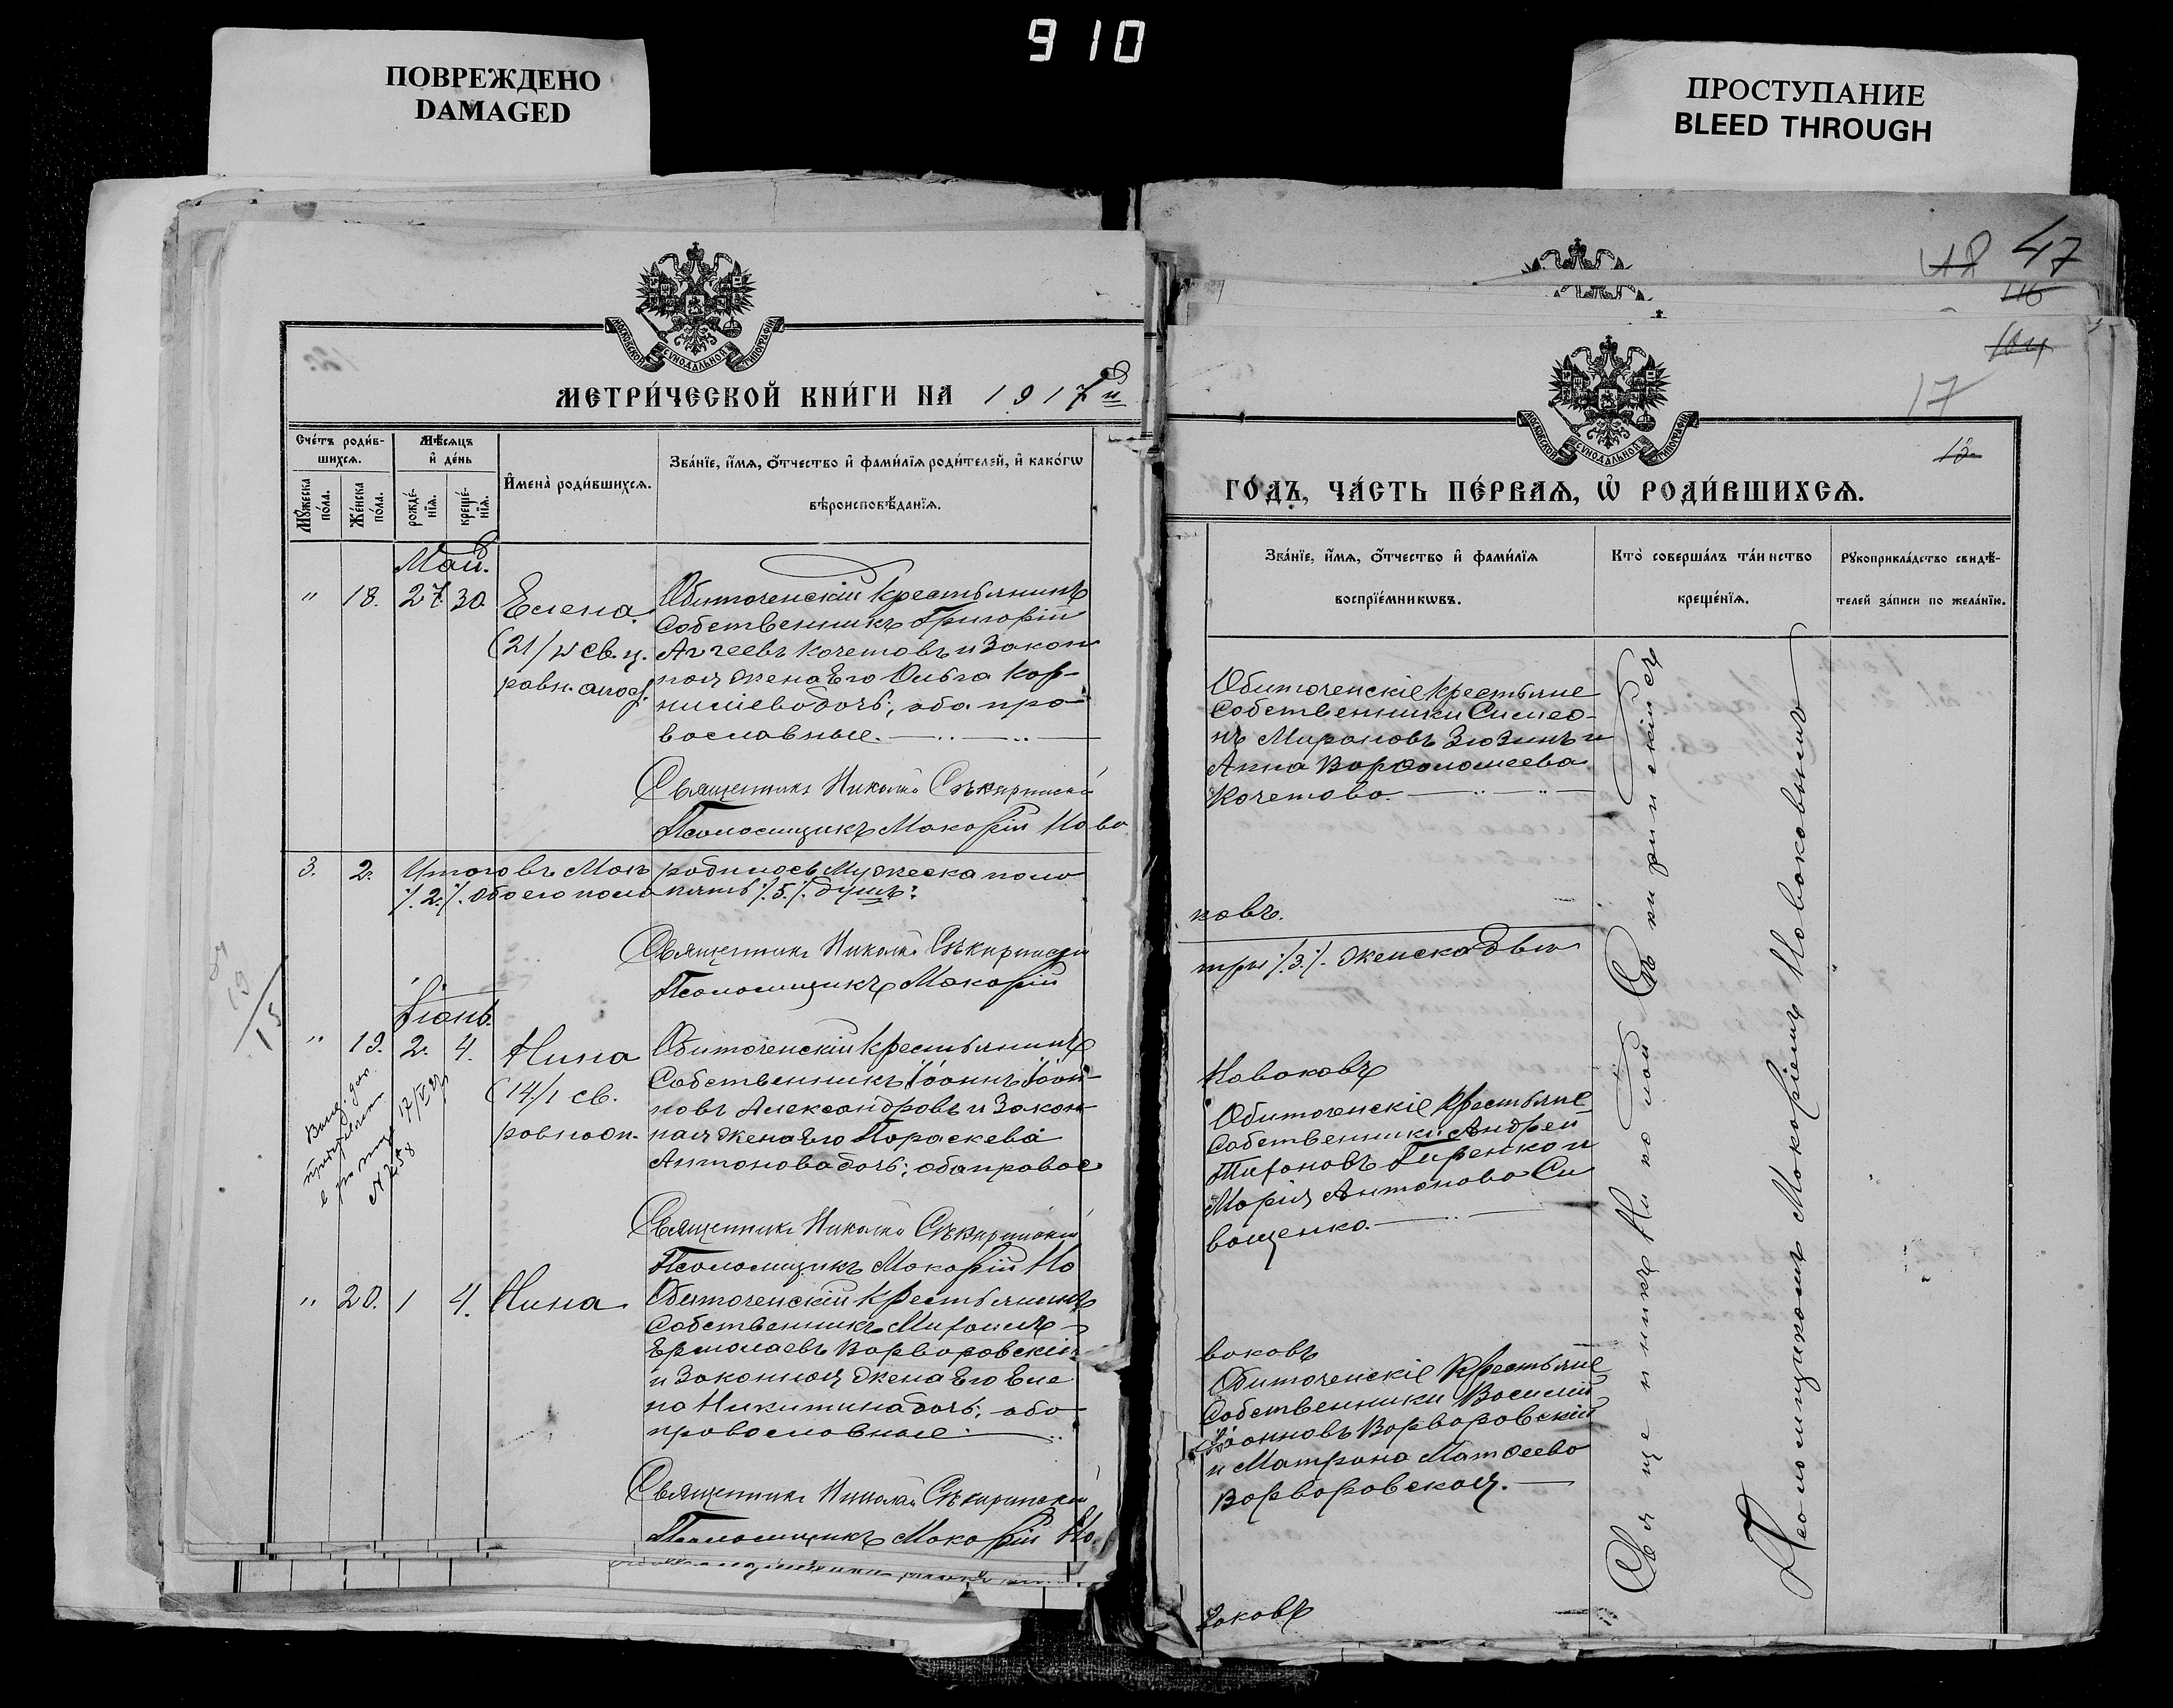 910
ПОВРЕЖДЕНО
DAMAGED
ПРОСТУПАНИЕ
BLEED THROUGH
МОСКОВСКОЙ СѴНОДАЛЬНОЙ ТИПОГРАФІИ
МЕТРИ́ЧЕСКОЙ КНИ́ГИ НА 1917й
Сче́тъ роди́в-
шихсѧ.
Мѣсѧцъ
и҆ де́нь
Му́жеска
по́ла.
Же́нска
по́ла.
рожде́-
нїѧ.
креще́-
нїѧ.
И҆мена̀ роди́вшихсѧ.
Зва́нїе, и҆́мѧ, ѻ҆́тчество и҆ фами́лїѧ роди́телей, и҆ како́гѡ
вѣроисповѣ́данїѧ.
Май.
" 18. 27. 30.
Елена.
(21/V св. ц.
равн. апос.
Обиточенскій крестьянинъ
Собственникъ Григорій
Агѣевъ Кочетовъ и Закон
ная жена Его Ольга Кор-
ниліева дочь; оба пра-
вославные.
Священникъ Николай Сѣкиринскій
Псаломщикъ Макарій Нова
3. 2. Итого въ Маѣ родилось Мужеска пола
/.2./. Обоего пола пять /.5./. душъ:
Священникъ Николай Сѣкиринскій
Псаломщикъ Макарій
Іюнь.
" 19. 2. 4.
Нина
(14/I св.
равноап.
Обиточенскій крестьянинъ
Собственникъ Іоаннъ Іоан-
новъ Александровъ и Закон-
ная жена Его Параскева
Антонова дочь; оба правос
17/VI 27
№ 258
Священникъ Николай Сѣкиринскій
Псаломщикъ Макарій Но
" 20. 1 4. Нина
Обиточенскій крестьянинъ
Собственникъ Михаилъ
Ермолаевъ Варваровскій
и Законная жена Его Еле
на Никитина дочь; оба
православные.
Священникъ Николай Сѣкиринскій
Псаломщикъ Макарій Но
47
116
104
17
12
МОСКОВСКОЙ СѴНОДАЛЬНОЙ ТИПОГРАФІИ
ГО́ДЪ, ЧА́СТЬ ПЕ́РВАѦ, Ѽ РОДИ́ВШИХСѦ.
Зва́нїе, и҆́мѧ, ѻ҆́тчество и҆ фами́лїѧ
воспрїе́мникѡвъ.
Кто̀ соверша́лъ та́инство
креще́нїѧ.
Рукоприкла́дство свидѣ́-
телей за́писи по жела́нїю.
Обиточенскіе крестьяне
Собственники Симео-
нъ Мироновъ Зюзинъ и
Анна Варѳоломеева
Кочетова.
ковъ.
три /.3./. женска двѣ
Новаковъ
Обиточенскіе крестьяне
Собственники Андрей
Тихоновъ Гиренко и
Марія Антонова Си
ващенко.
ваковъ
Обиточенскіе крестьяне
Собственники Василій
Іоанновъ Варваровскій
и Матрона Матѳеева
Варваровская.
ваковъ
Священникъ Николай Сѣкиринскій съ
Псаломщикомъ Макаріемъ Новаковымъ